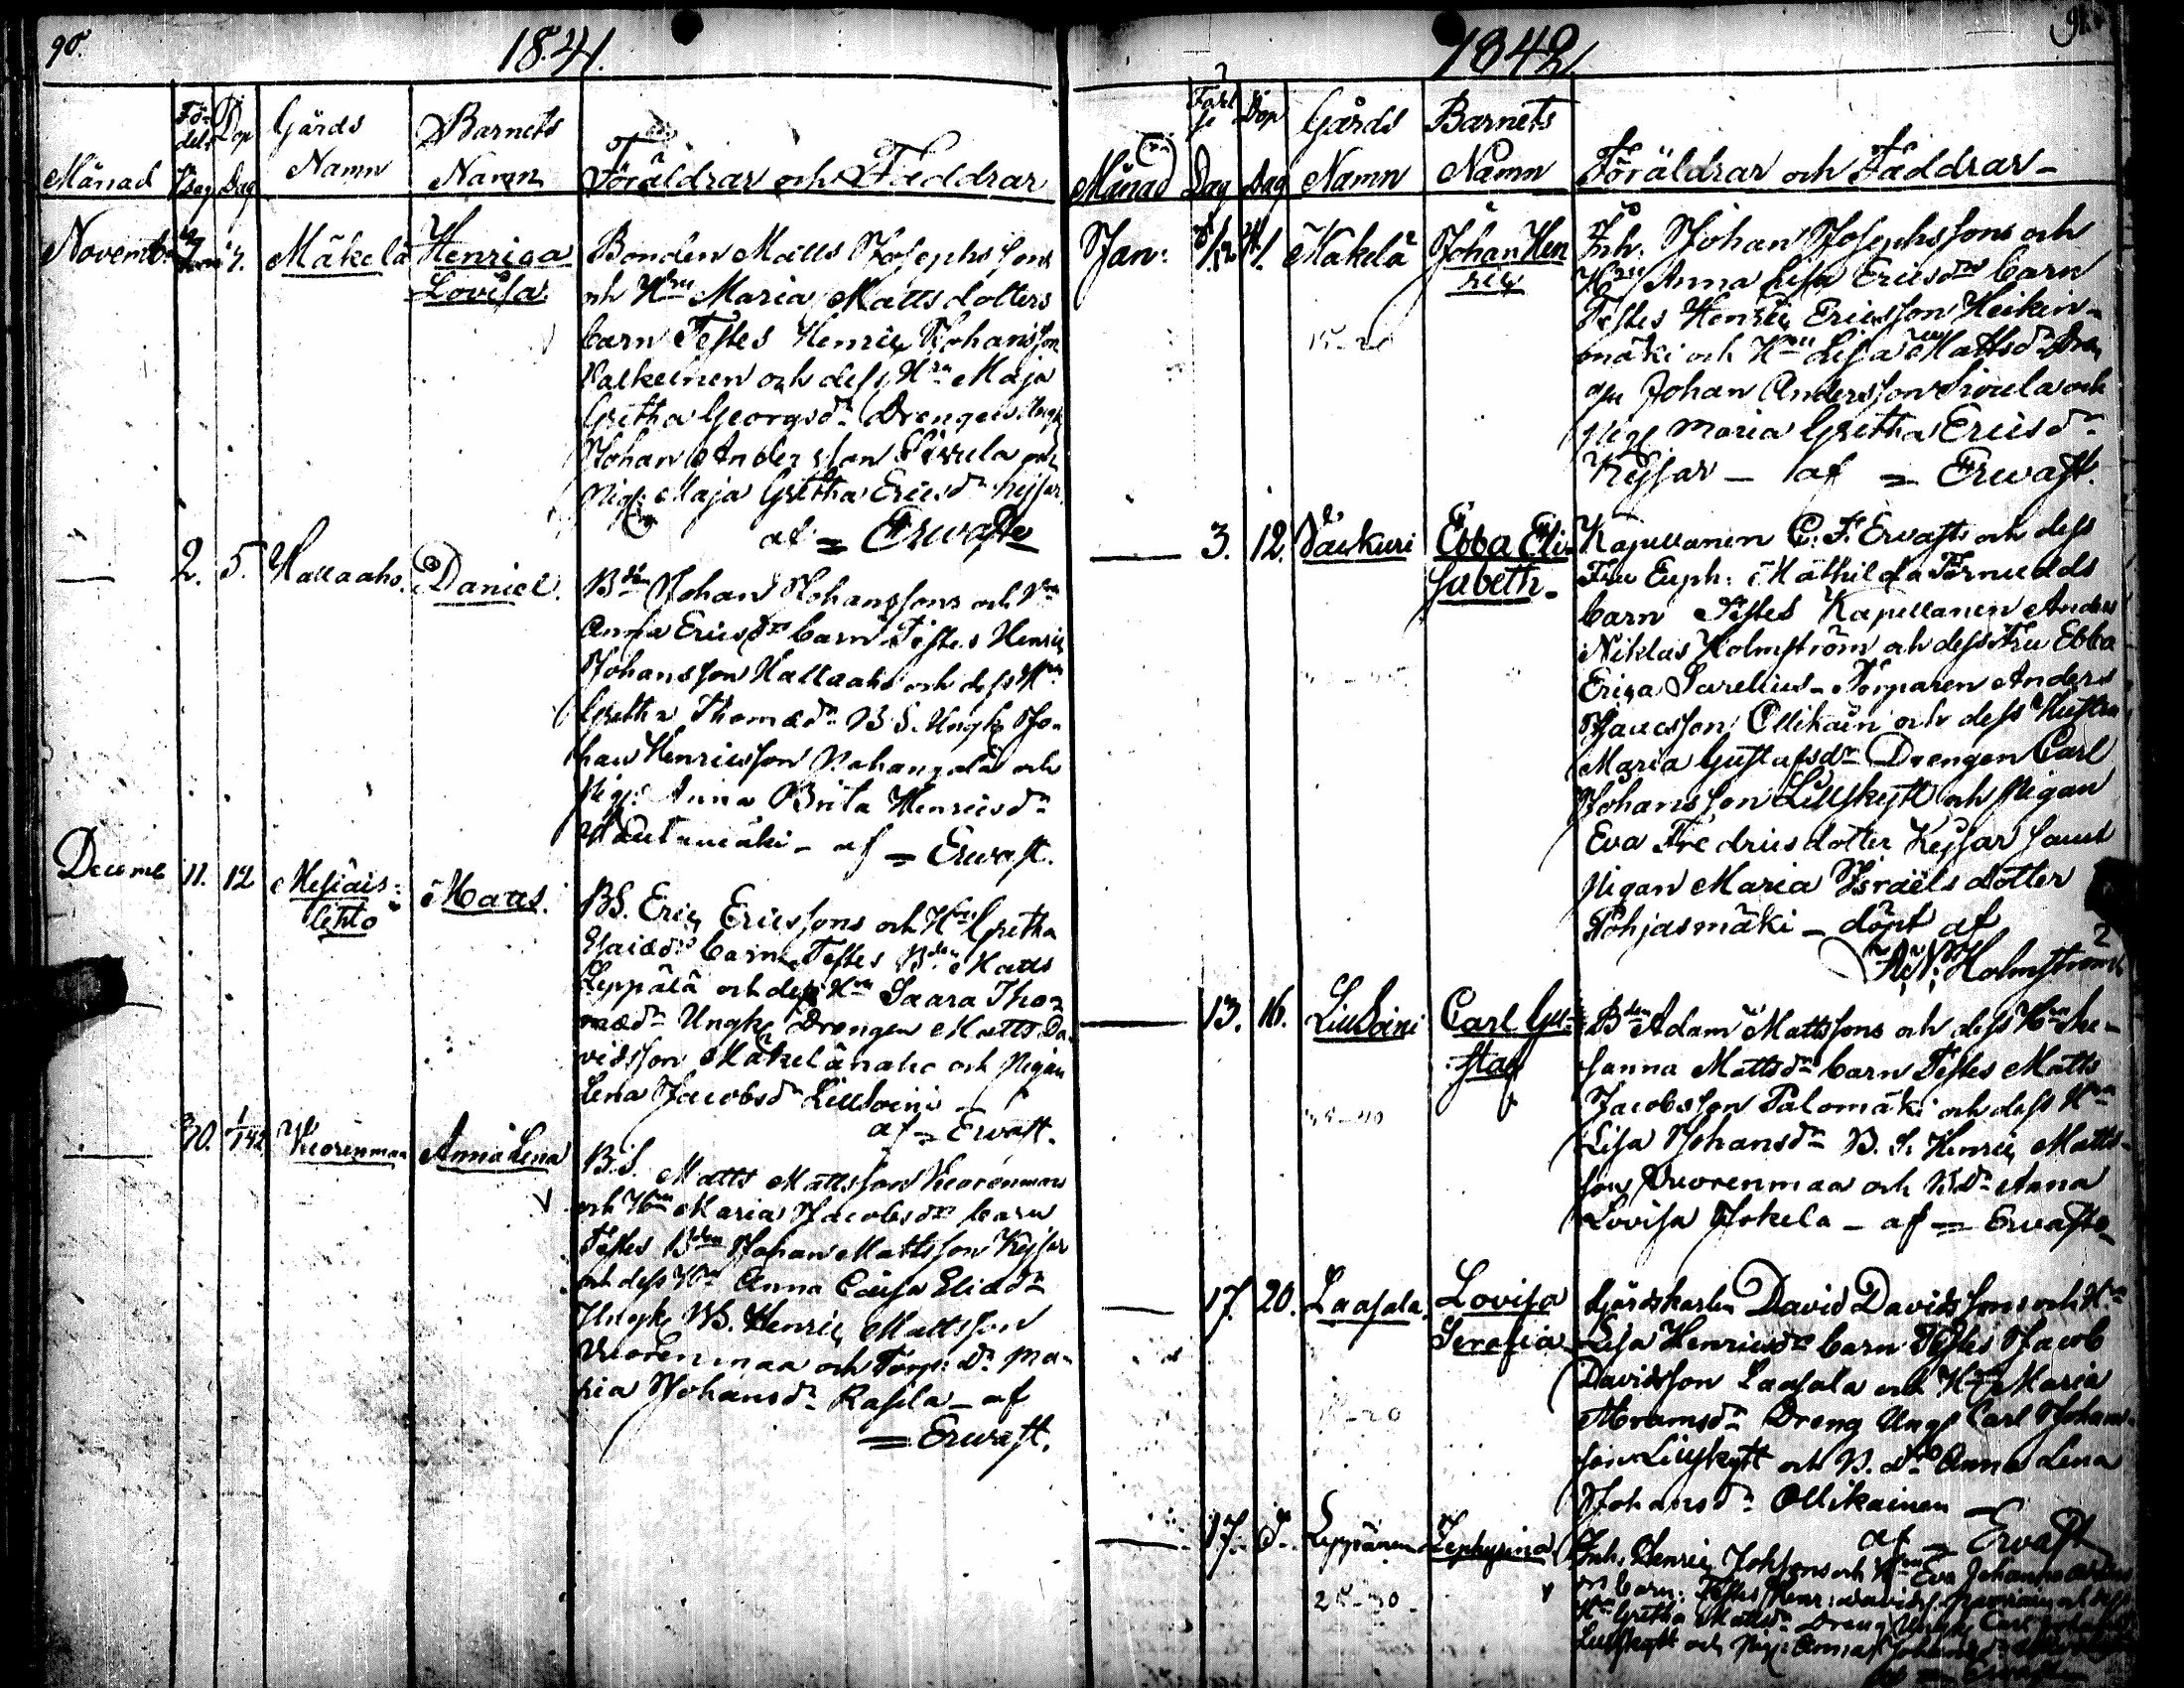 90.
1841.
Månad
Födels Dag
Dop Dag
Gårds Namn
Barnets Namn
Föräldrar och Faddrar
Novemb.
Mäkelä
Henrica
Lovisa.
Bonden Matts Josephssons
och Hru Maria Mattsdotters
barn Testes Henric Johansson
och dess Hru Maja
Gretha Georgsdr Drengen Ungk
Johan Andersson Sivula och
Pig. Maja Gretha Ericsdr Keisar
af = Erwast
2. 5. Hallaaho. Daniel.
Bdn Johan Johanssons och Hru
Anna Ericsdrs barn Testes Henric
Johansson Hallaaho och dess Hru
Gretha Thomædr B.S. Ungk Jo-
han Henricsson och
Pig. Anna Brita Henricsdr
Hautamäki - af = Erwast.
Decemb 11. 12 Mesiäis-
lehto
Matts.
BS. Eric Ericssons och Hru Gretha
Esaiædrs barn Testes Bden Matts
Leppälä och dess Hru Saara Tho-
mædr Ungk Drengen Matts Da-
vidsson Mäkelänaho och Pigan
Lena Jacobsdr Liilsoini
af = Erwast.
30. 1/1 42 Vuorenmaa Anna Lena
B.S. Matts Mattsson Vuorenmaa
och Hru Maria Jacobsdrs barn
Testes Bden Johan Mattsson Keisar
och dess Hru Anna Caisa Eliædr
Ungk BS. Henric Mattsson
Vuorenmaa och Torp. Dr Ma-
ria Johansdr Kassila - af
= Erwast.
1842
91.
Månad
Dag
Dop Dag
Gårds Namn
Barnets Namn
Föräldrar och Faddrar -
Jan: Mäkelä Johan Hen
ric
Inh. Johan Josephssons och
Hru Anna Lisa Ericsdrs barn
Testes Henric Ericsson Heikin-
mäki och Hru Lisa Mattsdr Dren
gen Johan Andersson Sivula och
Pig. Maria Gretha Ericsdr
Keisar - af = Erwast.
15-20
3. 12. Säckuri Ebba Eli-
sabeth.
Kapellanen C. F. Erwasts och dess
Fru Euph: Mathilda Törnudds
barn Testes Kapellanen Anders
Niklas Holmström och dess Fru Ebba
Erica Sarelius - Torparen Anders
Isacsson Ollikain och dess Hustru
Maria Gustafsdr Drengen Carl
Johansson Lillskytt och Pigan
Eva Fredricsdotter Keisar samt
Pigan Maria Israelsdotter
Pohjasmäki - döpt af
A: N: Holmström
13. 16. Liilsoini Carl Gu-
staf
Bden Adam Mattssons och dess Hru He-
Sanna Mattsdr barn Testes Matts
Jacobsson Palomäki och dess Hru
Lisa Johansdr B. S. Henric Matts-
son Vuorenmaa och B.dr Anna
Lovisa Jokela - af = Erwast.
35-40
17. 20. Laasala. Lovisa
Serafia
Gårdskarlen David Davidssons och Hru
Lisa Henricsdrs barn Testes Jacob
Davidsson Laasala och Hru Maria
Abramsdr Dreng Ungk Carl Johans-
son Lillskytt och B. dr Anna Lena
Johansdr Ollikainen
af = Erwast
17. Leppänen Zephyrina
25-30.
Inh. Henric Johssons och Hru Eva
barn. Testes Henr: Davids
Hru Gretha Mattsdr Dreng Ungk Carl
Lillskytt och Pig: Anna